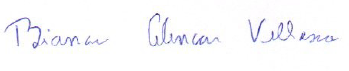 Bianca Alencar Vellasco